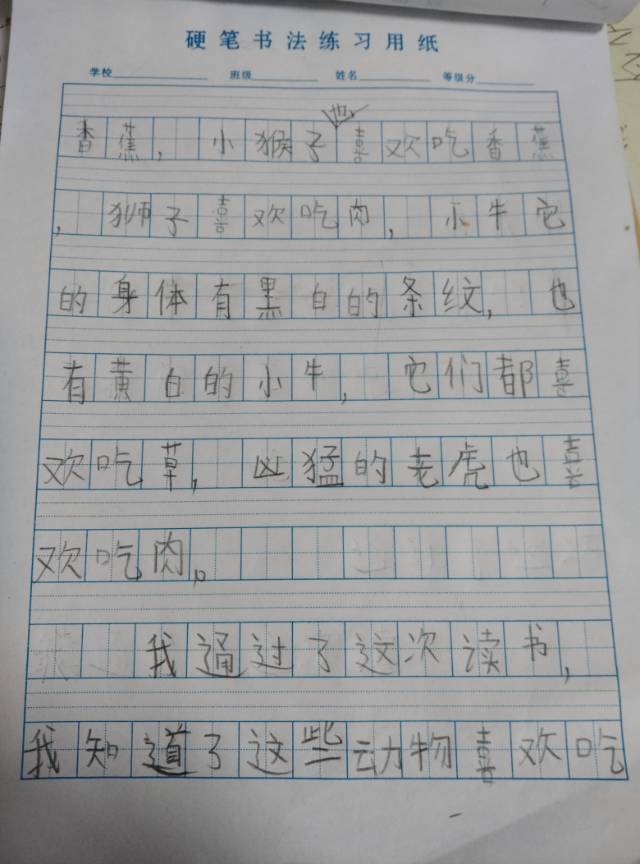 硬笔书法练习用纸
学校 班级 姓名 等级分
也
香蕉，小猴子喜欢吃香蕉
，狮子喜欢吃肉，小牛它
的身体有黑白的条纹，也
有黄白的小牛，它们都喜
欢吃草，凶猛的老虎也喜
欢吃肉。
我通过了这次读书，
我知道了这些动物喜欢吃